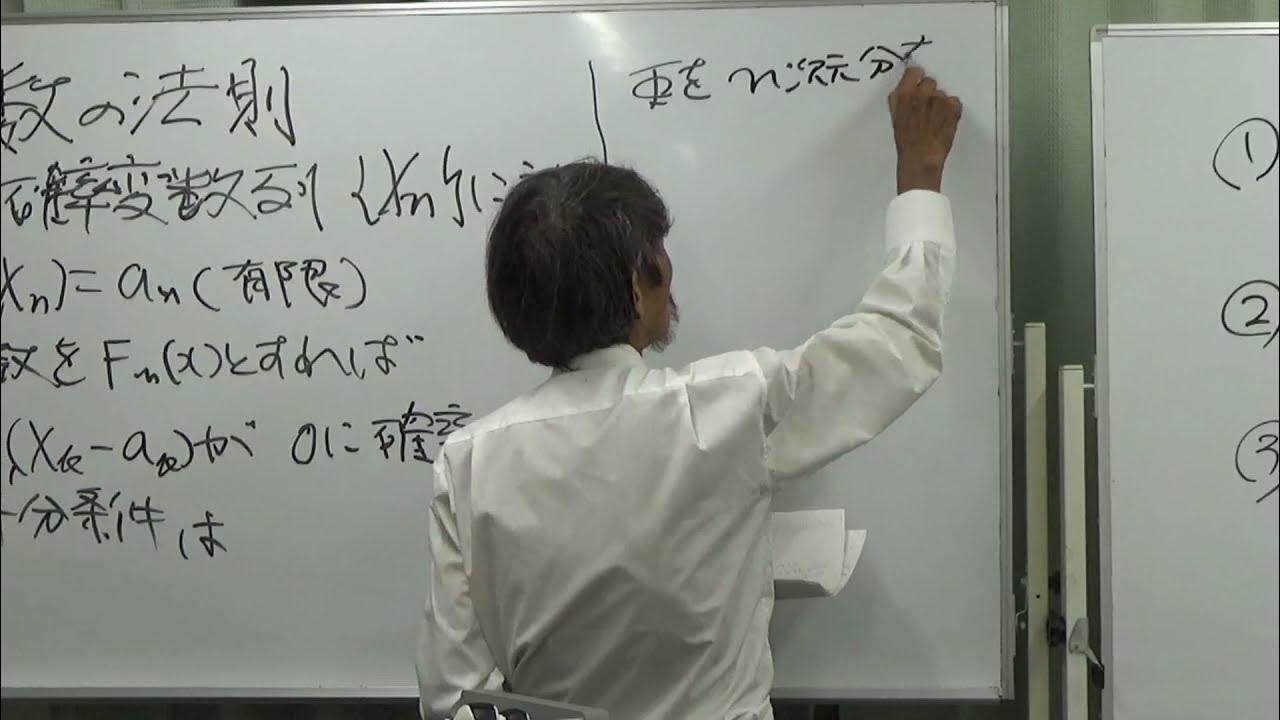 数の法則
確率変数列 {Xn}に
Xn)=an(有限)
数をFn(x)とすれば
(Xk-ak)が 0に確
十分条件は
Φを n次元分
①
②
③